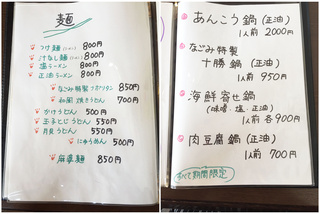 麺
つけ麺 800円
汁なし麺 800円
塩ラーメン 800円
正油ラーメン 800円
なごみ特製ナポリタン 850円
和風焼きうどん 700円
かけうどん 500円
玉子とじうどん 550円
月見うどん 550円
にゅうめん 500円
麻婆麺 850円
あんこう鍋(正油)
1人前 2000円
なごみ特製
十勝鍋(正油)
1人前 950円
海鮮寄せ鍋
(味噌・塩・正油)
1人前 各900円
肉豆腐鍋(正油)
1人前 700円
すべて期間限定